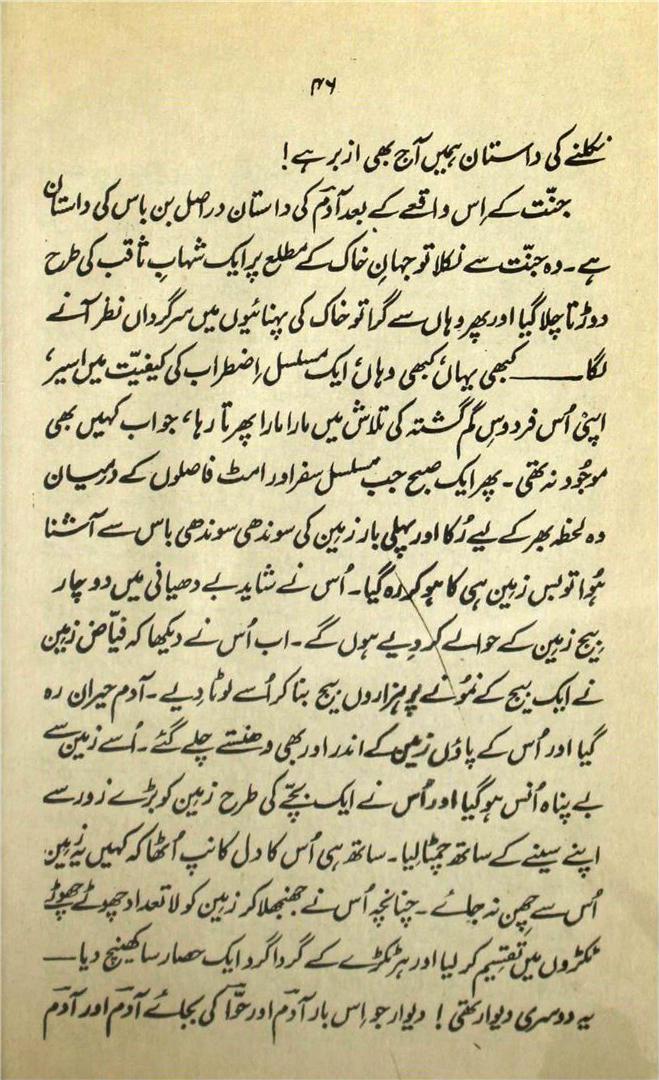 ۴۶
نکلنے کی داستان ہمیں آج بھی ازبر ہے!
جنّت کے اِس واقعے کے بعد آدمؑ کی داستان دراصل بن باس کی داستان
ہے۔ وہ جنّت سے نکلا تو جہانِ خاک کے مطلع پر ایک شہابِ ثاقب کی طرح
دوڑتا چلا گیا اور پھر وہاں سے گرا تو خاک کی پہنائیوں میں سرگرداں نظر آنے
لگا——کبھی یہاں، کبھی وہاں، ایک مسلسل اِضطراب کی کیفیّت میں اسیر،
اپنی اُس فردوسِ گم گشتہ کی تلاش میں مارا مارا پھرتا رہا، جو اب کہیں بھی
موجُود نہ تھی۔ پھر ایک صبح جب مسلسل سفر اور امٹ فاصلوں کے درمیان
وہ لحظہ بھر کے لیے رُکا اور پہلی بار زمین کی سوندھی سوندھی باس سے آشنا
ہُوا تو بس زمین ہی کا ہو کر رہ گیا۔ اُس نے شاید بے دھیانی میں دو چار
بیج زمین کے حوالے کر دیے ہوں گے۔ اب اُس نے دیکھا کہ فیّاض زمین
نے ایک بیج کے نمُونے پر ہزاروں بیج بنا کر اُسے لوٹا دِیے۔ آدم حیران رہ
گیا اور اُس کے پاؤں زمین کے اندر اور بھی دھنستے چلے گئے۔ اُسے زمین سے
بے پناہ اُنس ہو گیا اور اُس نے ایک بچّے کی طرح زمین کو بڑے زور سے
اپنے سینے کے ساتھ چمٹا لیا۔ ساتھ ہی اُس کا دل کانپ اُٹھا کہ کہیں یہ زمین
اُس سے چھِن نہ جائے۔ چنانچہ اُس نے جھنجھلا کر زمین کو لاتعداد چھوٹے چھوٹے
ٹکڑوں میں تقسیم کر لیا اور ہر ٹکڑے کے گردا گرد ایک حصار سا کھینچ دیا——
یہ دوسری دیوار تھی! دیوار جو اِس بار آدمؑ اور حوّاؑ کی بجائے آدمؑ اور آدمؑ